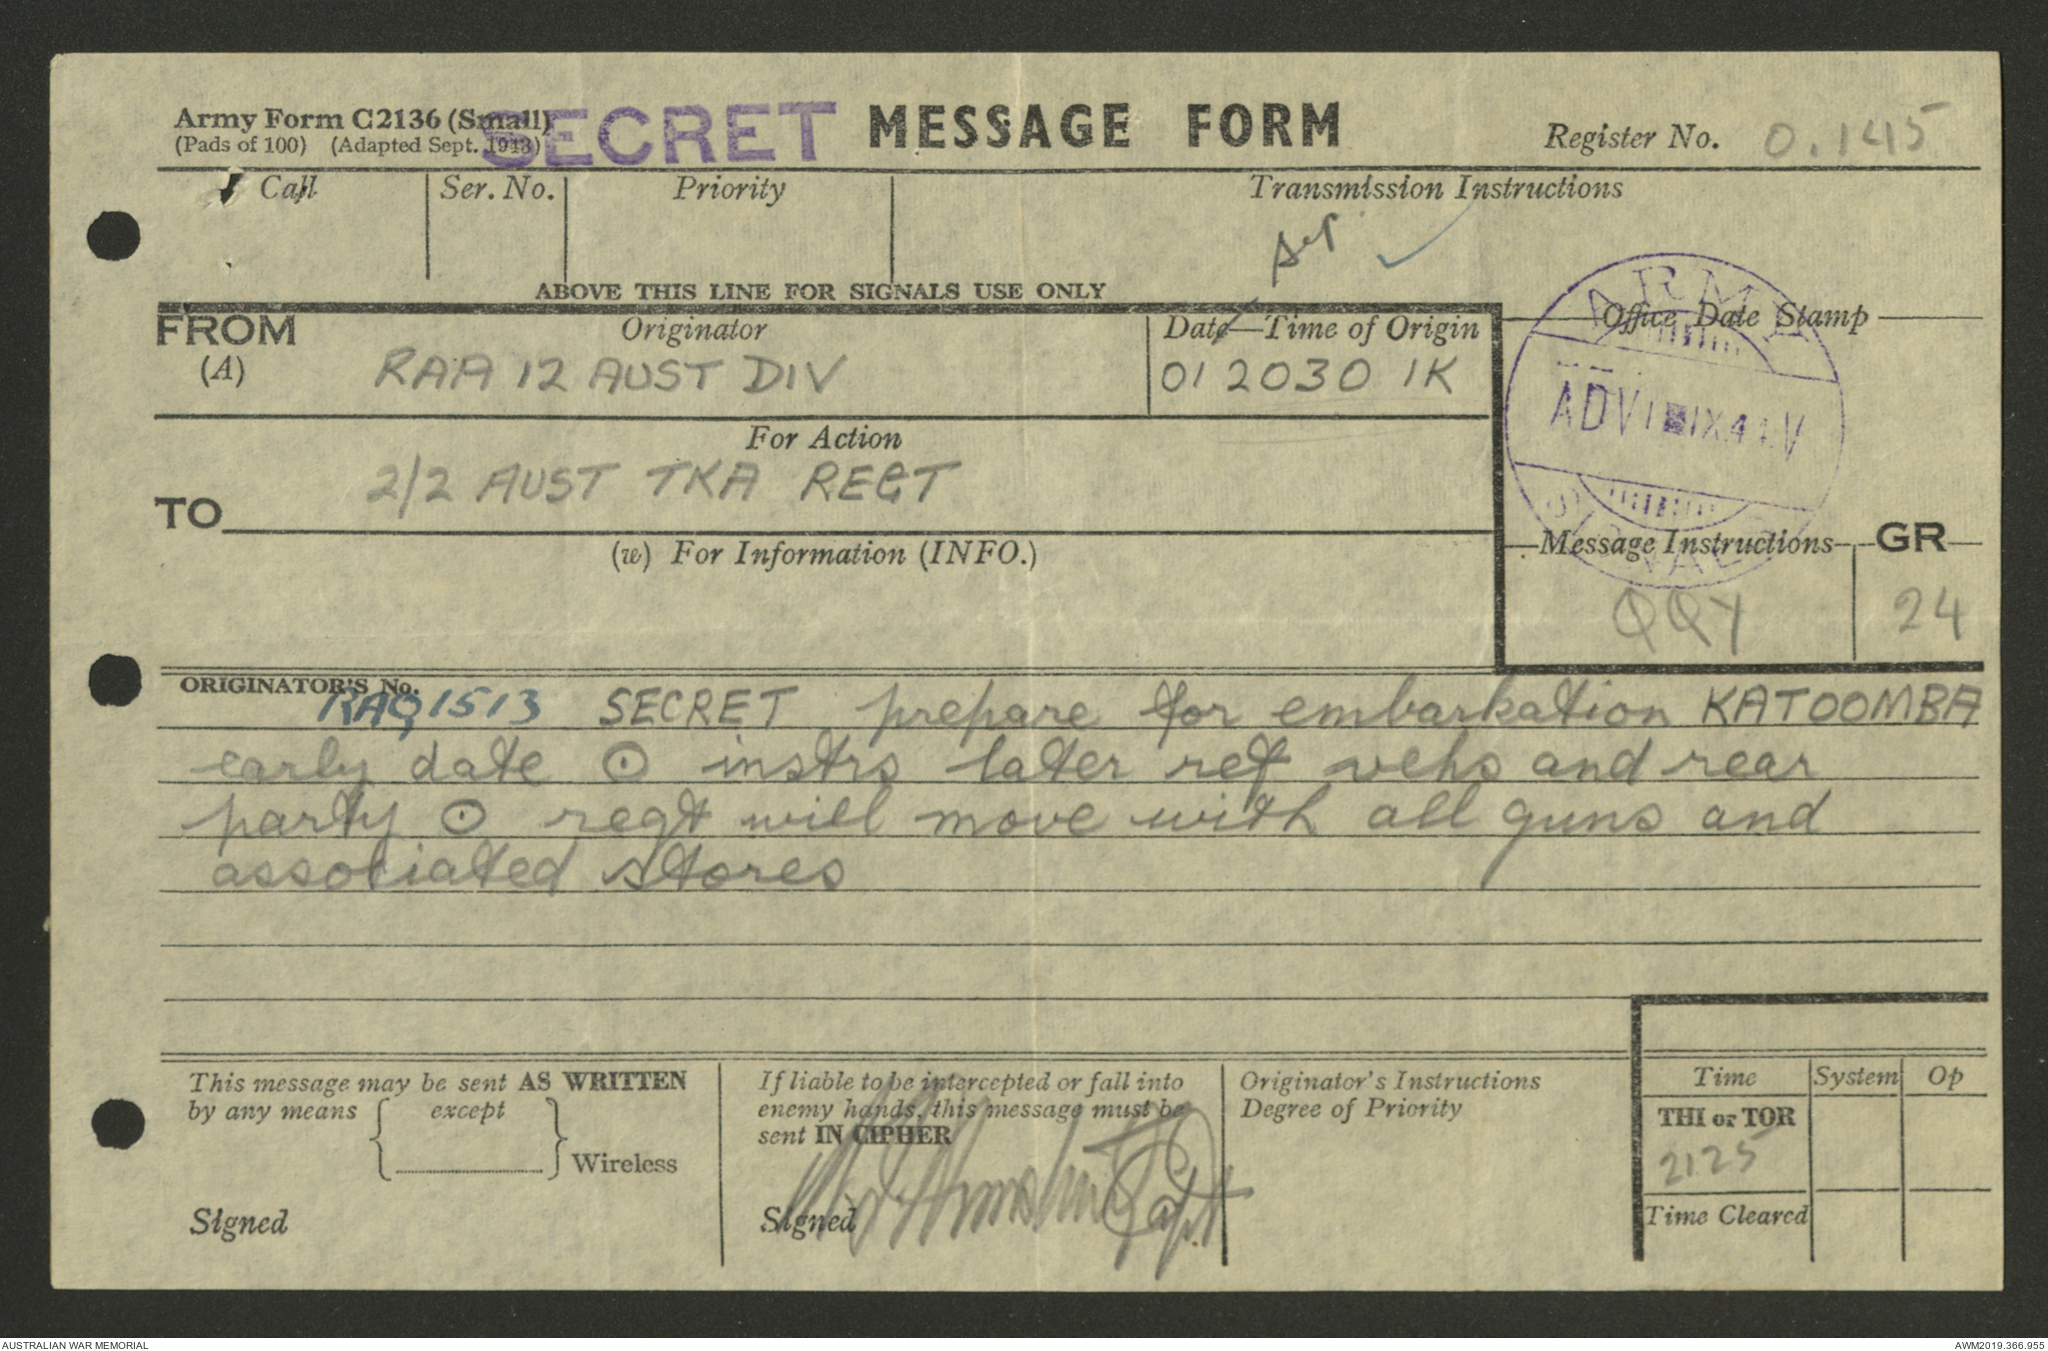 Army Form C2136 (Small)
(Pads of 100) (Adapted Sept. 1943)
SECRET
MESSAGE FORM
Register No. 0.145
Call Ser. No. Priority Transmission Instructions
ABOVE THIS LINE FOR SIGNALS USE ONLY
FROM (A) Originator Date—Time of Origin Office Date Stamp
RAA 12 AUST DIV 012030 1K
ARMY
ADV 1 IX.4 V
SIGNALS
For Action
TO 2/2 AUST TKA REGT
(w) For Information (INFO.)
Message Instructions GR
QQY 24
ORIGINATOR'S No.
RAQ1513 SECRET prepare for embarkation KATOOMBA
early date ⊙ instrs later ref vehs and rear
party ⊙ regt will move with all guns and
associated stores
This message may be sent AS WRITTEN
by any means { except } Wireless
Signed
If liable to be intercepted or fall into
enemy hands, this message must be
sent IN CIPHER
Signed Capt
Originator's Instructions
Degree of Priority
Time System Op
THI or TOR
2125
Time Cleared
AUSTRALIAN WAR MEMORIAL AWM2019.366.955